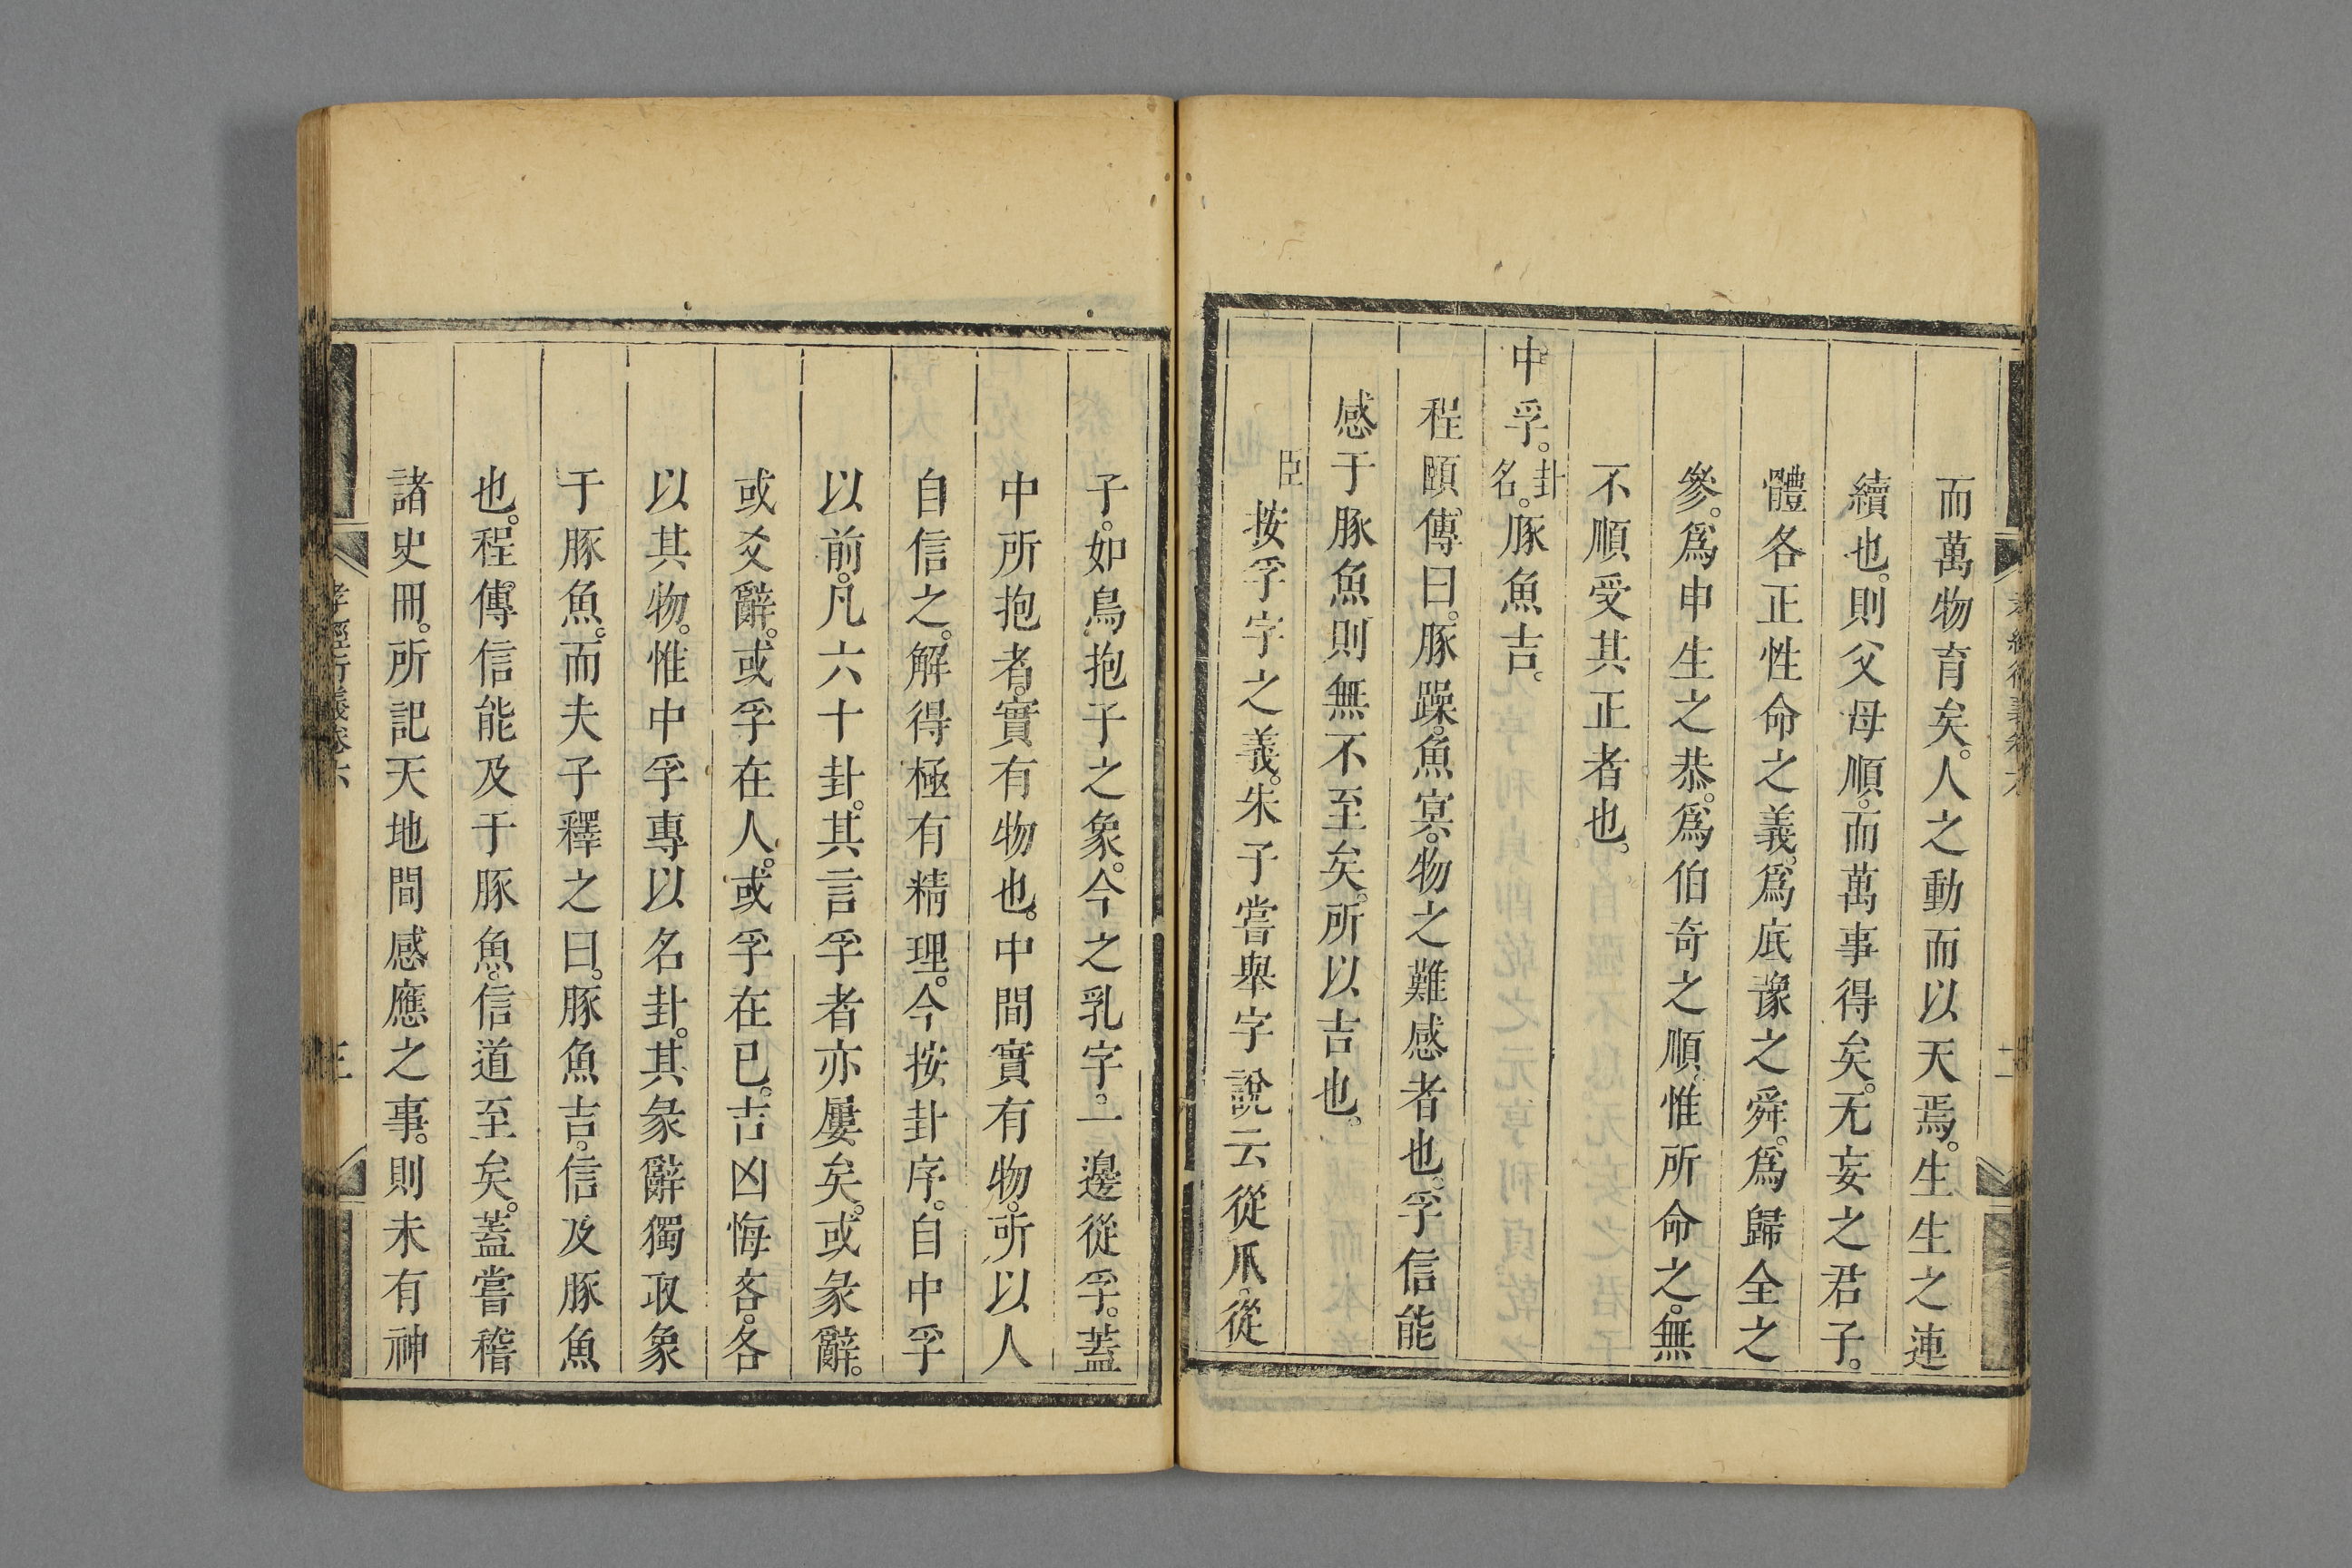 而萬物育矣。人之動而以天焉。生生之連
續也。則父母順。而萬事得矣。无妄之君子。
體各正性命之義。爲底豫之舜。爲歸全之
參。爲申生之恭。爲伯奇之順。惟所命之。無
不順受其正者也。
中孚。卦名。豚魚吉。
程頤傳曰。豚躁。魚㝠。物之難感者也。孚信能
感于豚魚則無不至矣。所以吉也。
臣按孚字之義。朱子嘗舉字說云從爪。從
子。如鳥抱子之象。今之乳字。一邊從孚。蓋
中所抱者。實有物也。中間實有物。所以人
自信之。解得極有精理。今按卦序。自中孚
以前。凡六十卦。其言孚者亦屢矣。或彖辭。
或爻辭。或孚在人。或孚在已。吉凶悔吝。各
以其物。惟中孚專以名卦。其彖辭獨取象
于豚魚。而夫子釋之曰。豚魚吉。信及豚魚
也。程傳信能及于豚魚。信道至矣。蓋嘗稽
諸史冊。所記天地間感應之事。則未有神
孝經衍義卷六